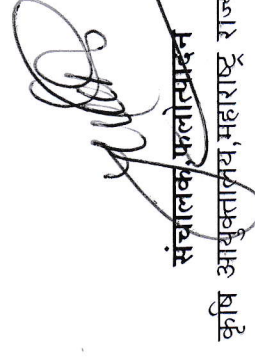 संचालक,फलोत्पादन
कृषि आयुक्तालय,महाराष्ट्र